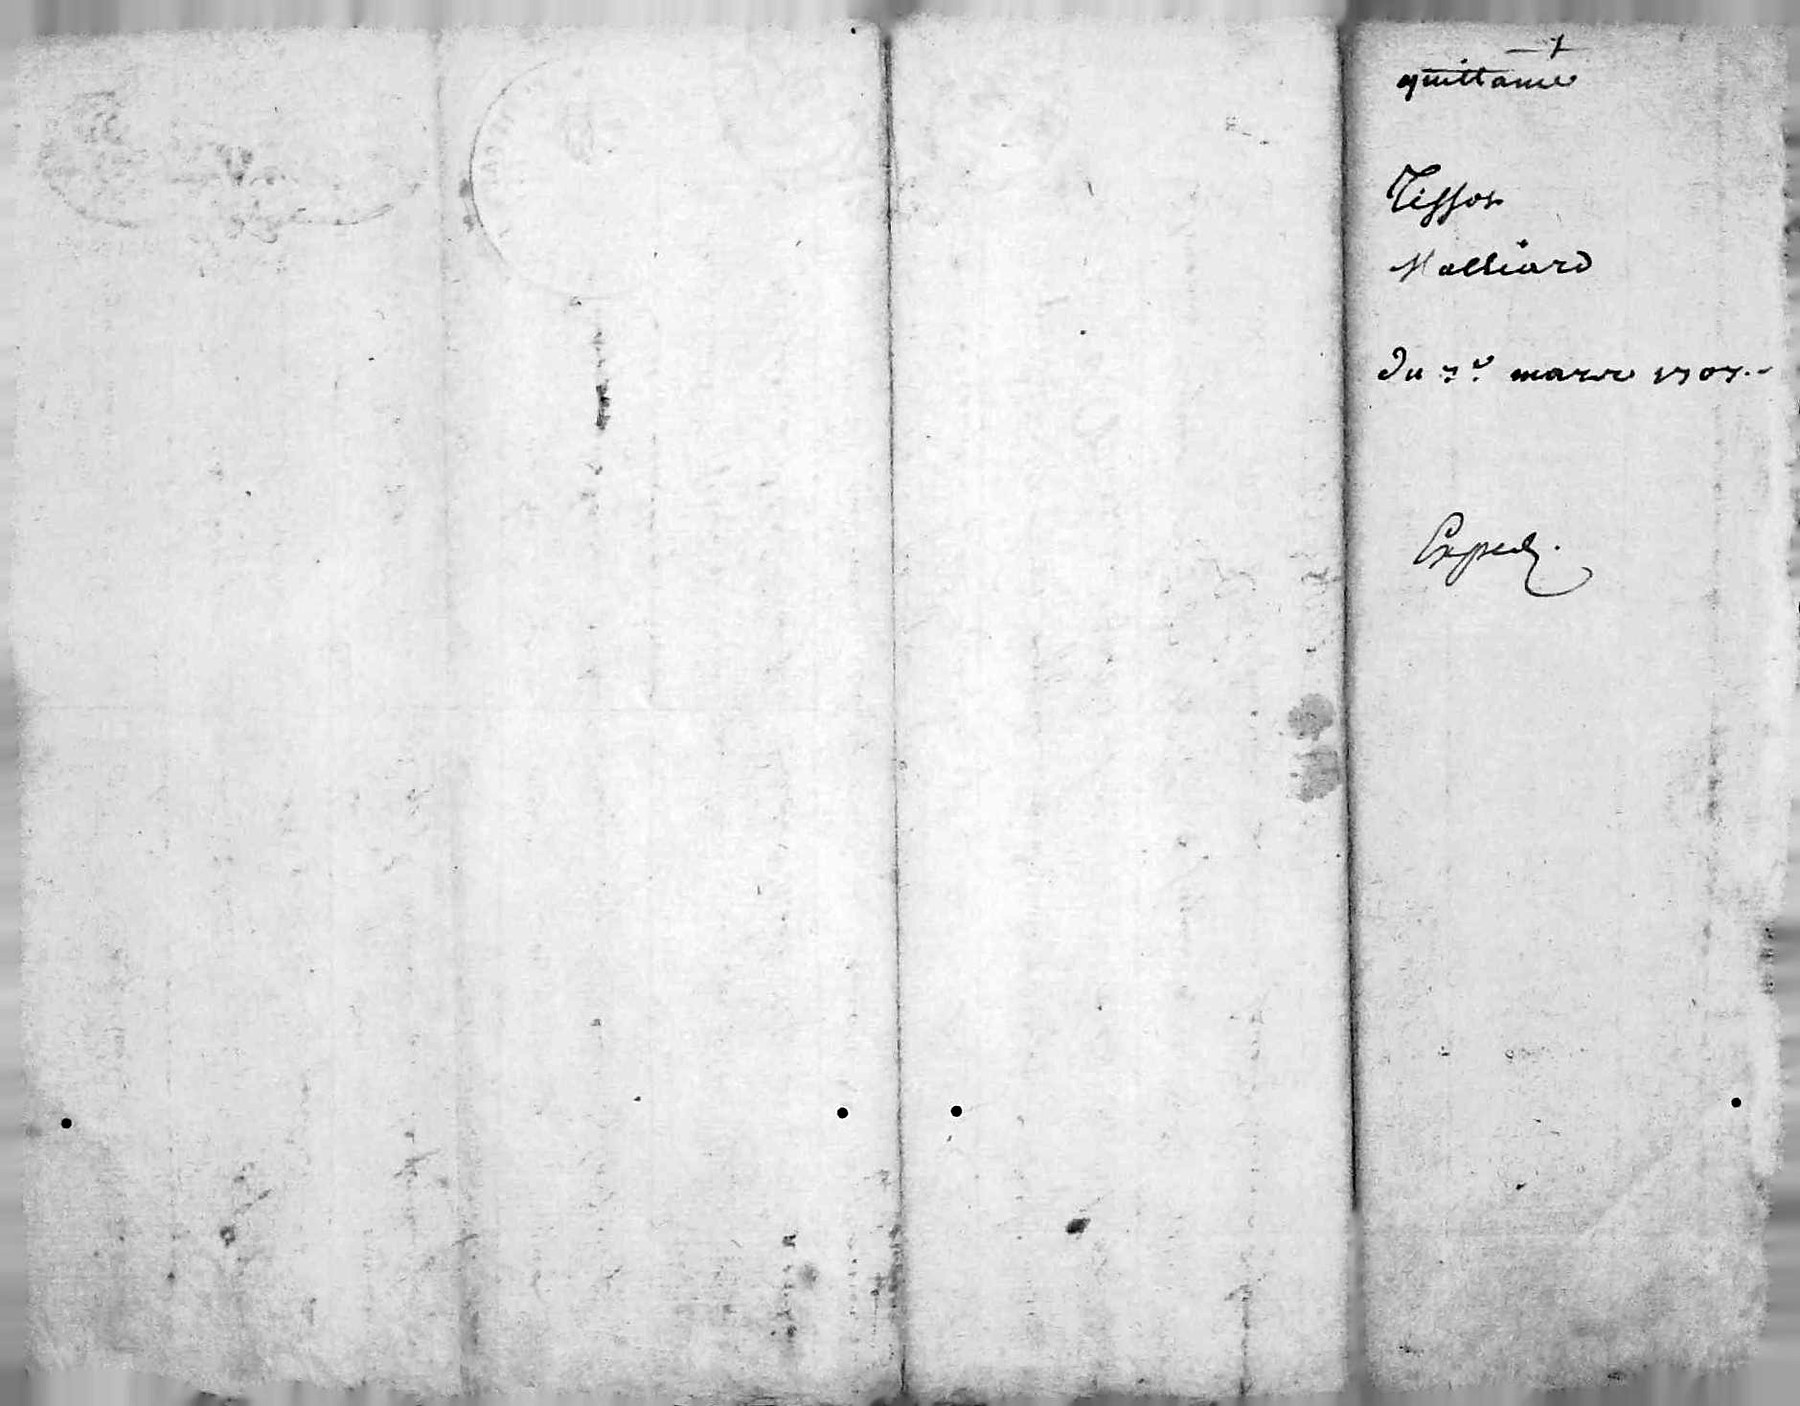 quittance
Tissot
Malliard
Du 7e mars 1707.
Exped.